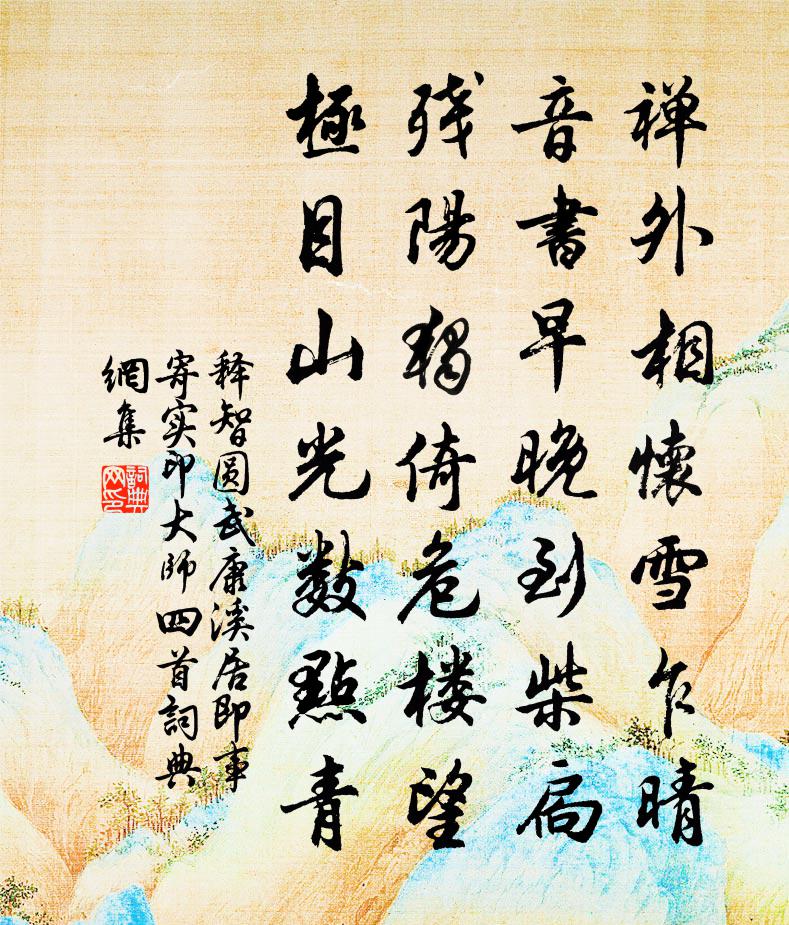 禅外相懷雪乍晴
音書早晚到柴扃
残陽独倚危楼望
極目山光数點青
释智圆武康溪居即事
寄实印大师四首詞典
網集
詞典
网印